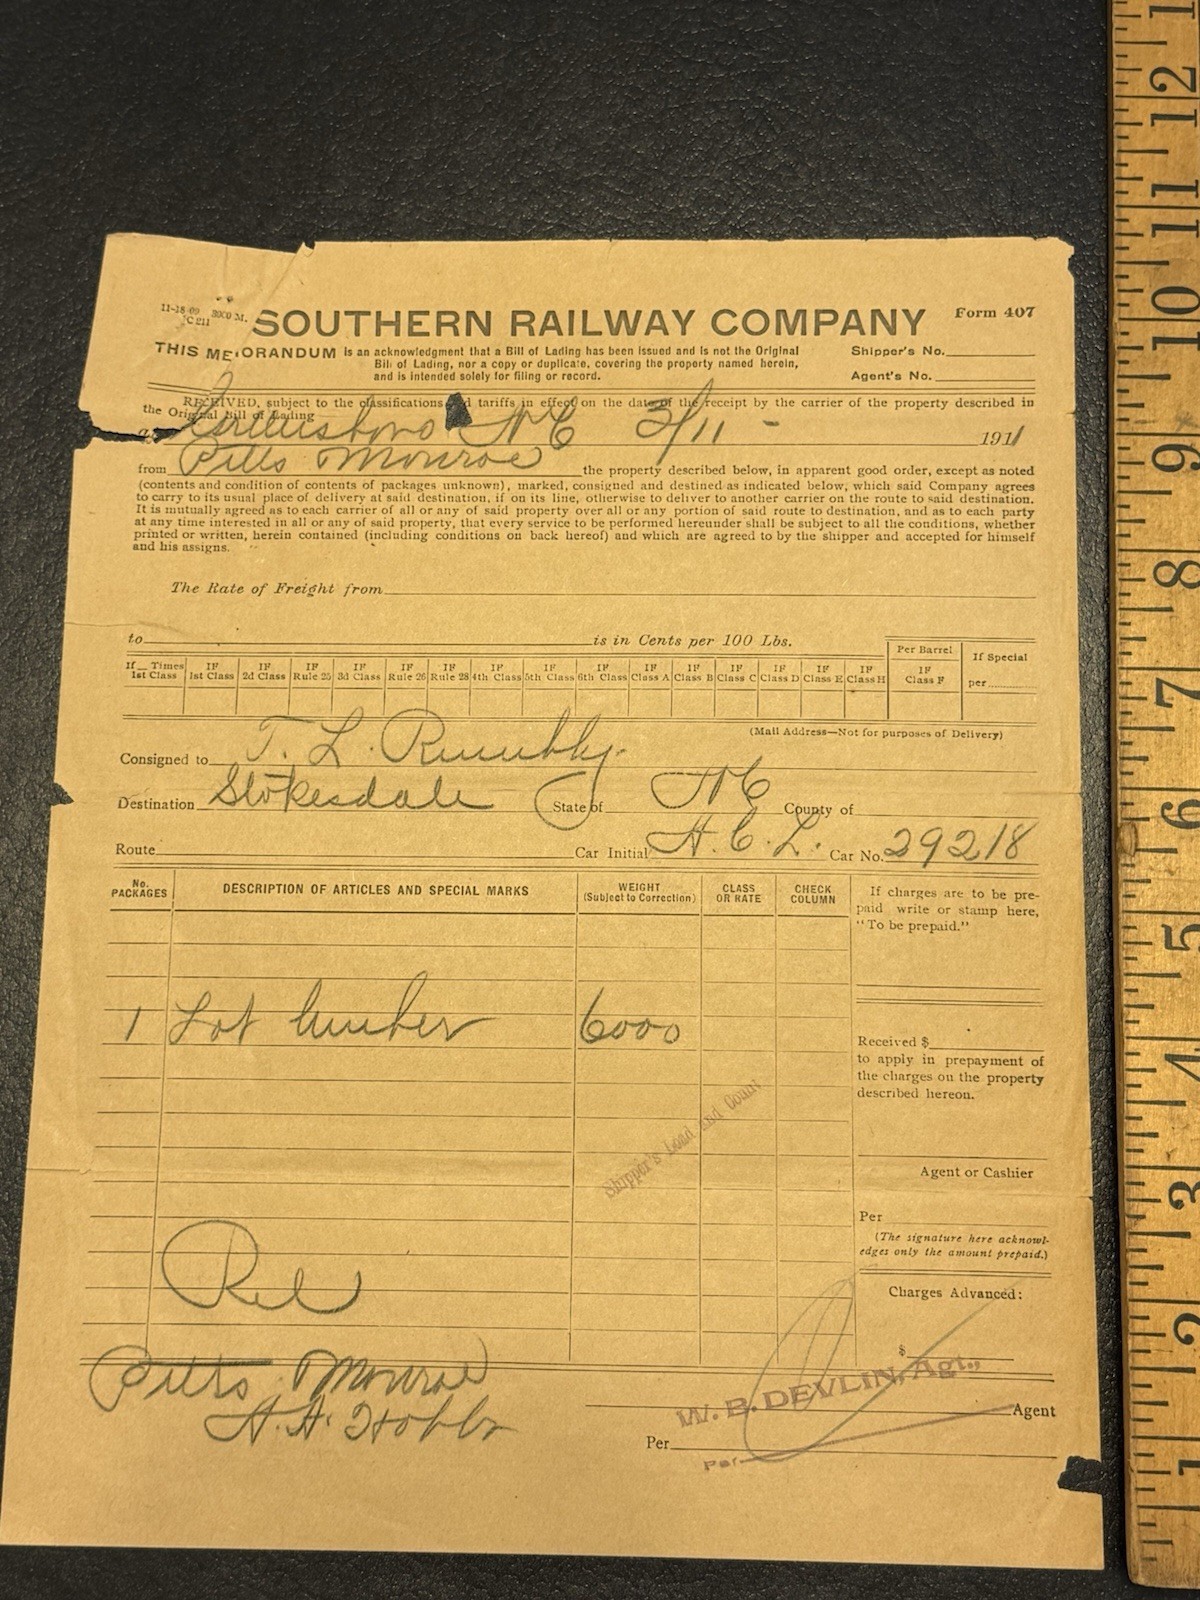 11-18-09 3000 M.
SOUTHERN RAILWAY COMPANY
Form 407
THIS MEMORANDUM is an acknowledgment that a Bill of Lading has been issued and is not the Original
Bill of Lading, nor a copy or duplicate, covering the property named herein,
and is intended solely for filing or record.
Shipper's No.
Agent's No.
RECEIVED, subject to the classifications and tariffs in effect on the date of the receipt by the carrier of the property described in
the Original Bill of Lading
at Greensboro N C 3/11 - 1911
from Pitts Monroe the property described below, in apparent good order, except as noted
(contents and condition of contents of packages unknown), marked, consigned and destined as indicated below, which said Company agrees
to carry to its usual place of delivery at said destination, if on its line, otherwise to deliver to another carrier on the route to said destination.
It is mutually agreed as to each carrier of all or any of said property over all or any portion of said route to destination, and as to each party
at any time interested in all or any of said property, that every service to be performed hereunder shall be subject to all the conditions, whether
printed or written, herein contained (including conditions on back hereof) and which are agreed to by the shipper and accepted for himself
and his assigns.
The Rate of Freight from
to is in Cents per 100 Lbs.
If Times 1st Class
IF 1st Class
IF 2d Class
IF Rule 25
IF 3d Class
IF Rule 26
IF Rule 28
IF 4th Class
IF 5th Class
IF 6th Class
IF Class A
IF Class B
IF Class C
IF Class D
IF Class E
IF Class H
Per Barrel
IF Class F
If Special
per
(Mail Address—Not for purposes of Delivery)
Consigned to T. L. Rumbly.
Destination Stokesdale State of N C County of
Route Car Initial A. C. L. Car No. 29218
No. PACKAGES
DESCRIPTION OF ARTICLES AND SPECIAL MARKS
WEIGHT (Subject to Correction)
CLASS OR RATE
CHECK COLUMN
If charges are to be pre-
paid write or stamp here,
"To be prepaid."
1 Lot lumber 6000
Received $
to apply in prepayment of
the charges on the property
described hereon.
Shipper's Load and Count
Agent or Cashier
Per
(The signature here acknowl-
edges only the amount prepaid.)
Rel
Charges Advanced:
$
Pitts Monroe
W. B. DEVLIN, Agt.,
Agent
A. A. Hobbs
Per
Per